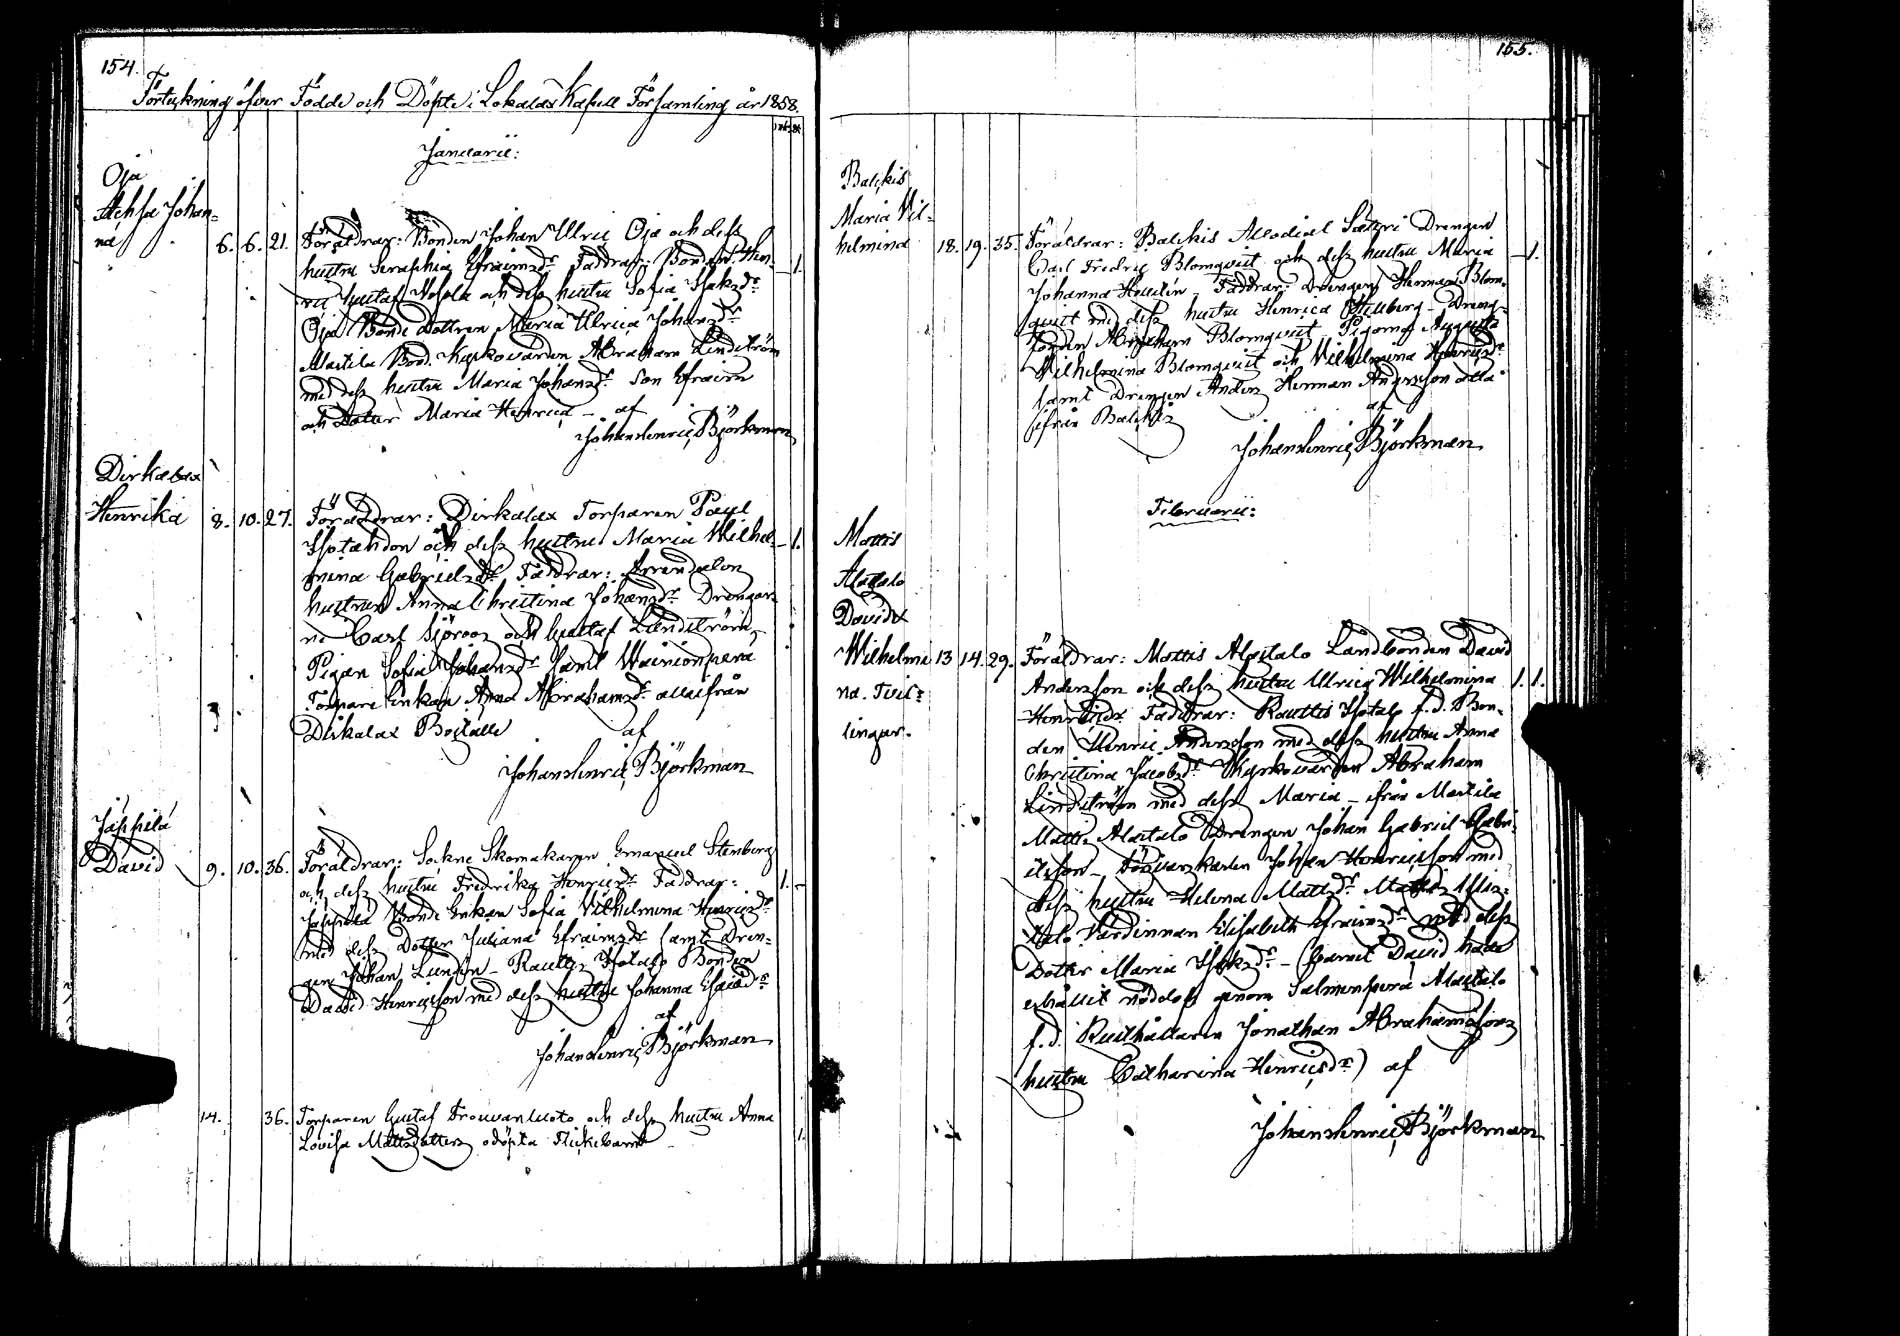 154.
Förteckning öfver Födde och Döpte i Lokalax Kapell Församling år 1858.
Januarii:
Oja
Achsa Johan=
na 6. 6. 21. Föräldrar: Bonden Johan Ulric Oja och dess
hustru Seraphia Efraimsdr Faddrar: Bonden Hen- 1.
ric Gustaf och dess hustru Sofia Isaksdr
Oja Bonde Dottren Maria Ulrica Johansdr
Martila Bond. Kyrkovärden Abraham Lindström
med dess hustru Maria Johansdr Son Efraim
och Dotter Maria Henrica – af
Johan Henric Björkman
Dirkalax
Henrika 8. 10. 27. Föräldrar: Dirkalax Torparen Paul
och dess hustru Maria Wilhel- 1.
mina Gabrielsdr Faddrar:
hustrun Anna Christina Johansdr Drengar-
ne Carl Sjöroos och Gustaf Lindström,
Pigan Sofia Johansdr samt Wainionperä
Torpare Enkan Anna Abrahamsdr alla ifrån
Dirkalax Boställe af
Johan Henric Björkman
Jäppilä
David 9. 10. 36. Föräldrar: Sockne Skomakaren Emanuel Stenberg
och dess hustru Fredrika Henricsdr Faddrar: 1.
Jäppilä Bonde Enkan Sofia Vilhelmina Henricsdr
med dess Dotter Juliana Efraimsdr samt Dren=
gen Johan Lundén – Rauttis Isotalo Bonden
David Henricsson med dess hustru Johanna Esaiædr
af
Johan Henric Björkman
14. 36. Torparen Gustaf Trouvanluoto och dess hustru Anna
Lovisa Mattsdotters odöpta Flickebarn 1.
155.
Balckis
Maria Vil=
helmina 18. 19. 35. Föräldrar: Balckis Allodial Säteri Drengen
Carl Fredric Blomqvist och dess hustru Maria 1.
Johanna Hellén – Faddrar: Drengen Herman Blom-
qvist med dess hustru Henrica – Dreng-
Abraham Blomqvist Pigorna Augusta
Wilhelmina Blomqvist och Vilhelmina Henricsdr
samt Drengen Anders Herman Andersson alla
ifrån Balckis af
Johan Henric Björkman
Februarii:
Mattis
Alatalo
David &
Wilhelmi 13 14. 29. Föräldrar: Mattis Alatalo Landbonden David
na. Tvil= Andersson och dess hustru Ulrica Wilhelmina 1. 1.
lingar. Henricsdr Faddrar: Rauttis Isotalo f.d. Bon-
den Henric Andersson med dess hustru Anna
Christina Jacobsdr Kyrkovärden Abraham
Lindström med dess Maria – ifrån Martila
Mattis Alatalo Drengen Johan Gabriel Gabri-
elsson – Johan Henricsson med
dess hustru Helena Mattsdr Mattis
talo Värdinnan Elisabeth Efraimsdr med dess
Dotter Maria Isaksdr – (Barnet David hade
erhållit nöddop genom Salmenperä Alatalo
f.d. Rusthållaren Jonathan Abrahamssons
hustru Catharina Henricsdr) af
Johan Henric Björkman